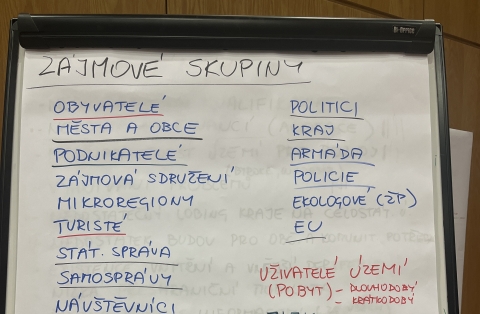 ZÁJMOVÉ SKUPINY
OBYVATELÉ
MĚSTA A OBCE
PODNIKATELÉ
ZÁJMOVÁ SDRUŽENÍ
MIKROREGIONY
TURISTÉ
STÁT. SPRÁVA
SAMOSPRÁVY
NÁVŠTĚVNÍCI
POLITICI
KRAJ
ARMÁDA
POLICIE
EKOLOGOVÉ (ŽP)
EU
UŽIVATELÉ ÚZEMÍ
(POBYT) - DLOUHODOBÝ
- KRÁTKODOBÝ